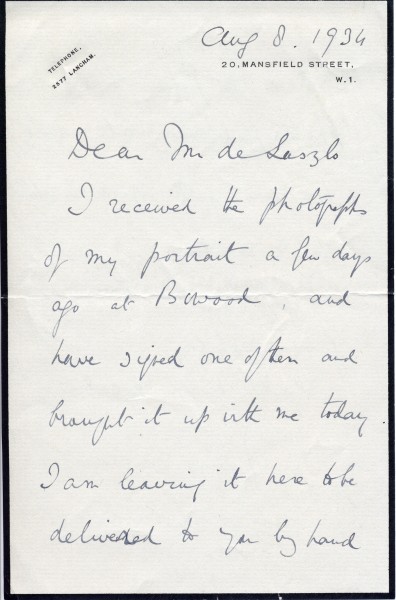 Aug 8. 1934
TELEPHONE.
2577 LANGHAM.
20, MANSFIELD STREET,
W.1.
Dear Mr de Laszlo
I received the photographs
of my portrait a few days
ago at Bowood, and
have signed one of them and
brought it up with me today.
I am leaving it here to be
delivered to you by hand